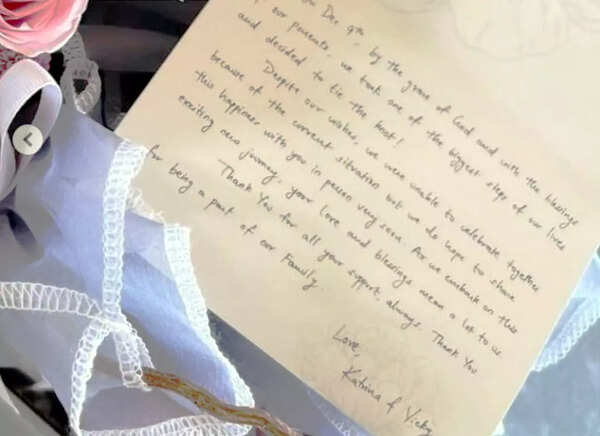 On Dec 9th, by the grace of God and with the blessings
our parents, we took one of the biggest steps of our lives
and decided to tie the knot!
Despite our wishes, we were unable to celebrate together
because of the current situation but we do hope to share
this happiness with you in person very soon. As we embark on this
exciting new journey, your love and blessings mean a lot to us
Thank You for all your support, always. Thank You
for being a part of our Family.
Love,
Katrina & Vicky